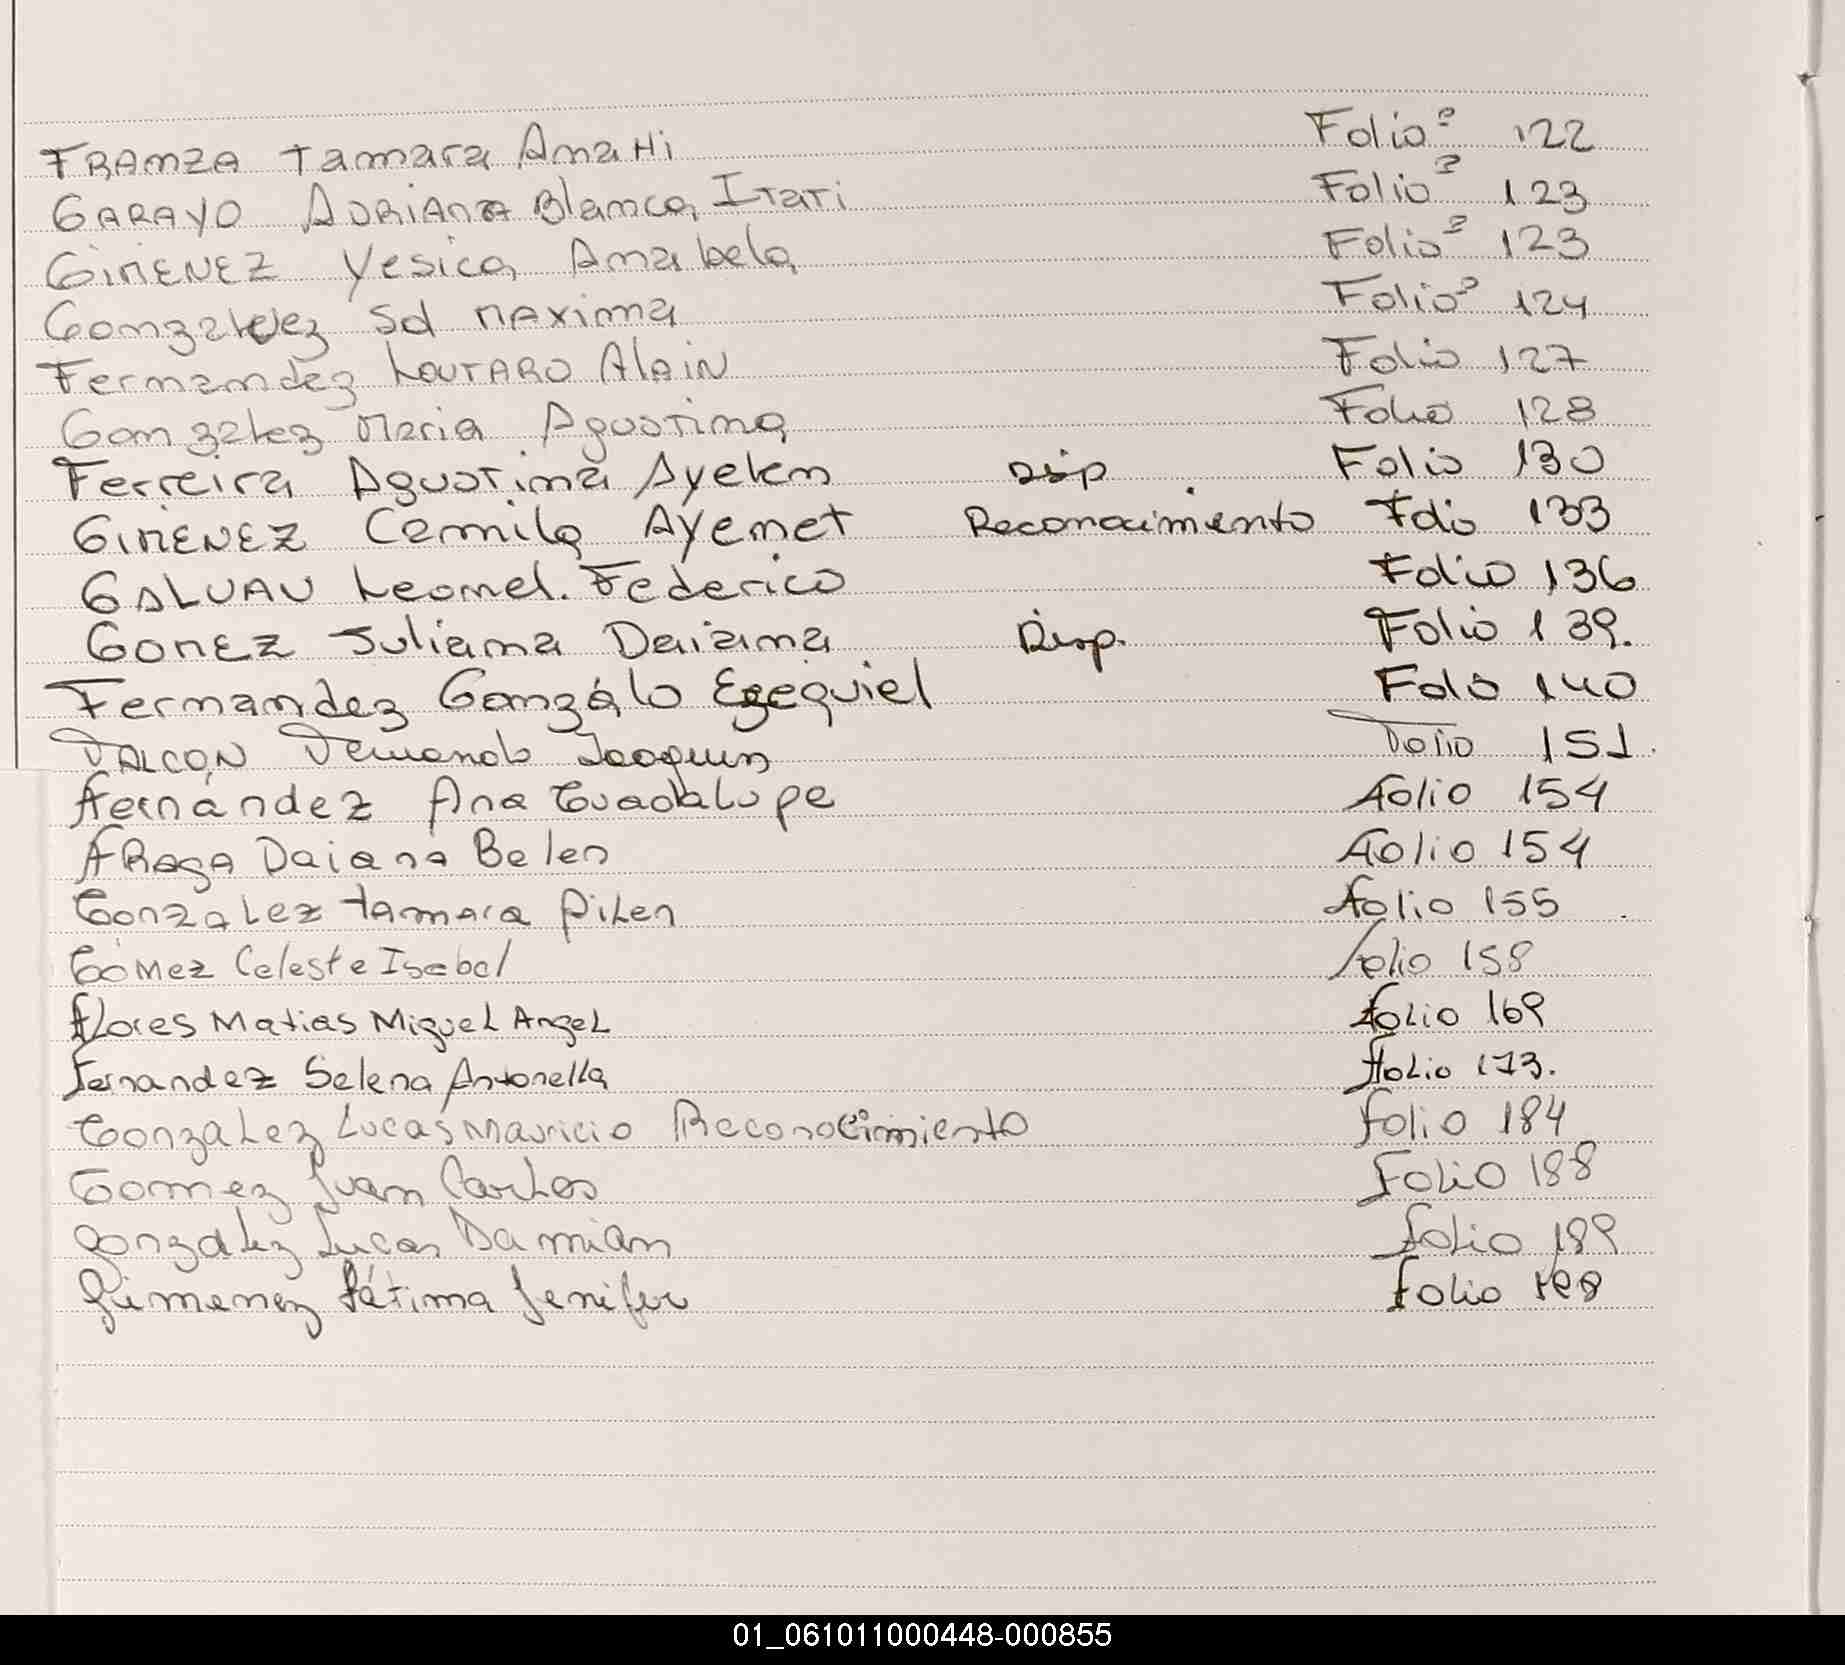 FRANZA Tamara Anahi Folio º 122
GARAYO ADRIANA Blanca Itati Folio º 123
GIMENEZ Yesica Anabela Folio º 123
Gonzalez Sol Maxima Folio º 124
Fernandez LAUTARO AlAiN Folio 127
Gonzalez Maria Agustina Folio 128
Ferreira Agustina Ayelen Disp Folio 130
GIMENEZ Camila Ayemet Reconocimiento Folio 133
GALVAN Leonel. Federico Folio 136
GOMEZ Juliana Daiana Disp. Folio 139.
Fernandez Gonzálo Ezequiel Folio 140
FALCON Fernando Joaquin Folio 151.
Fernández Ana Guadalupe Folio 154
FRAGA Daiana Belen Folio 154
Gonzalez tamara Pilen Folio 155
Gómez Celeste Isabel Folio 158
Flores Matias Miguel Angel Folio 169
Fernandez Selena Antonella Folio 173.
Gonzalez Lucas Mauricio Reconocimiento Folio 184
Gomez Juan Carlos Folio 188
Gonzalez Lucas Damián Folio 189
Gimenez Fátima Jenifer Folio
01_061011000448-000855